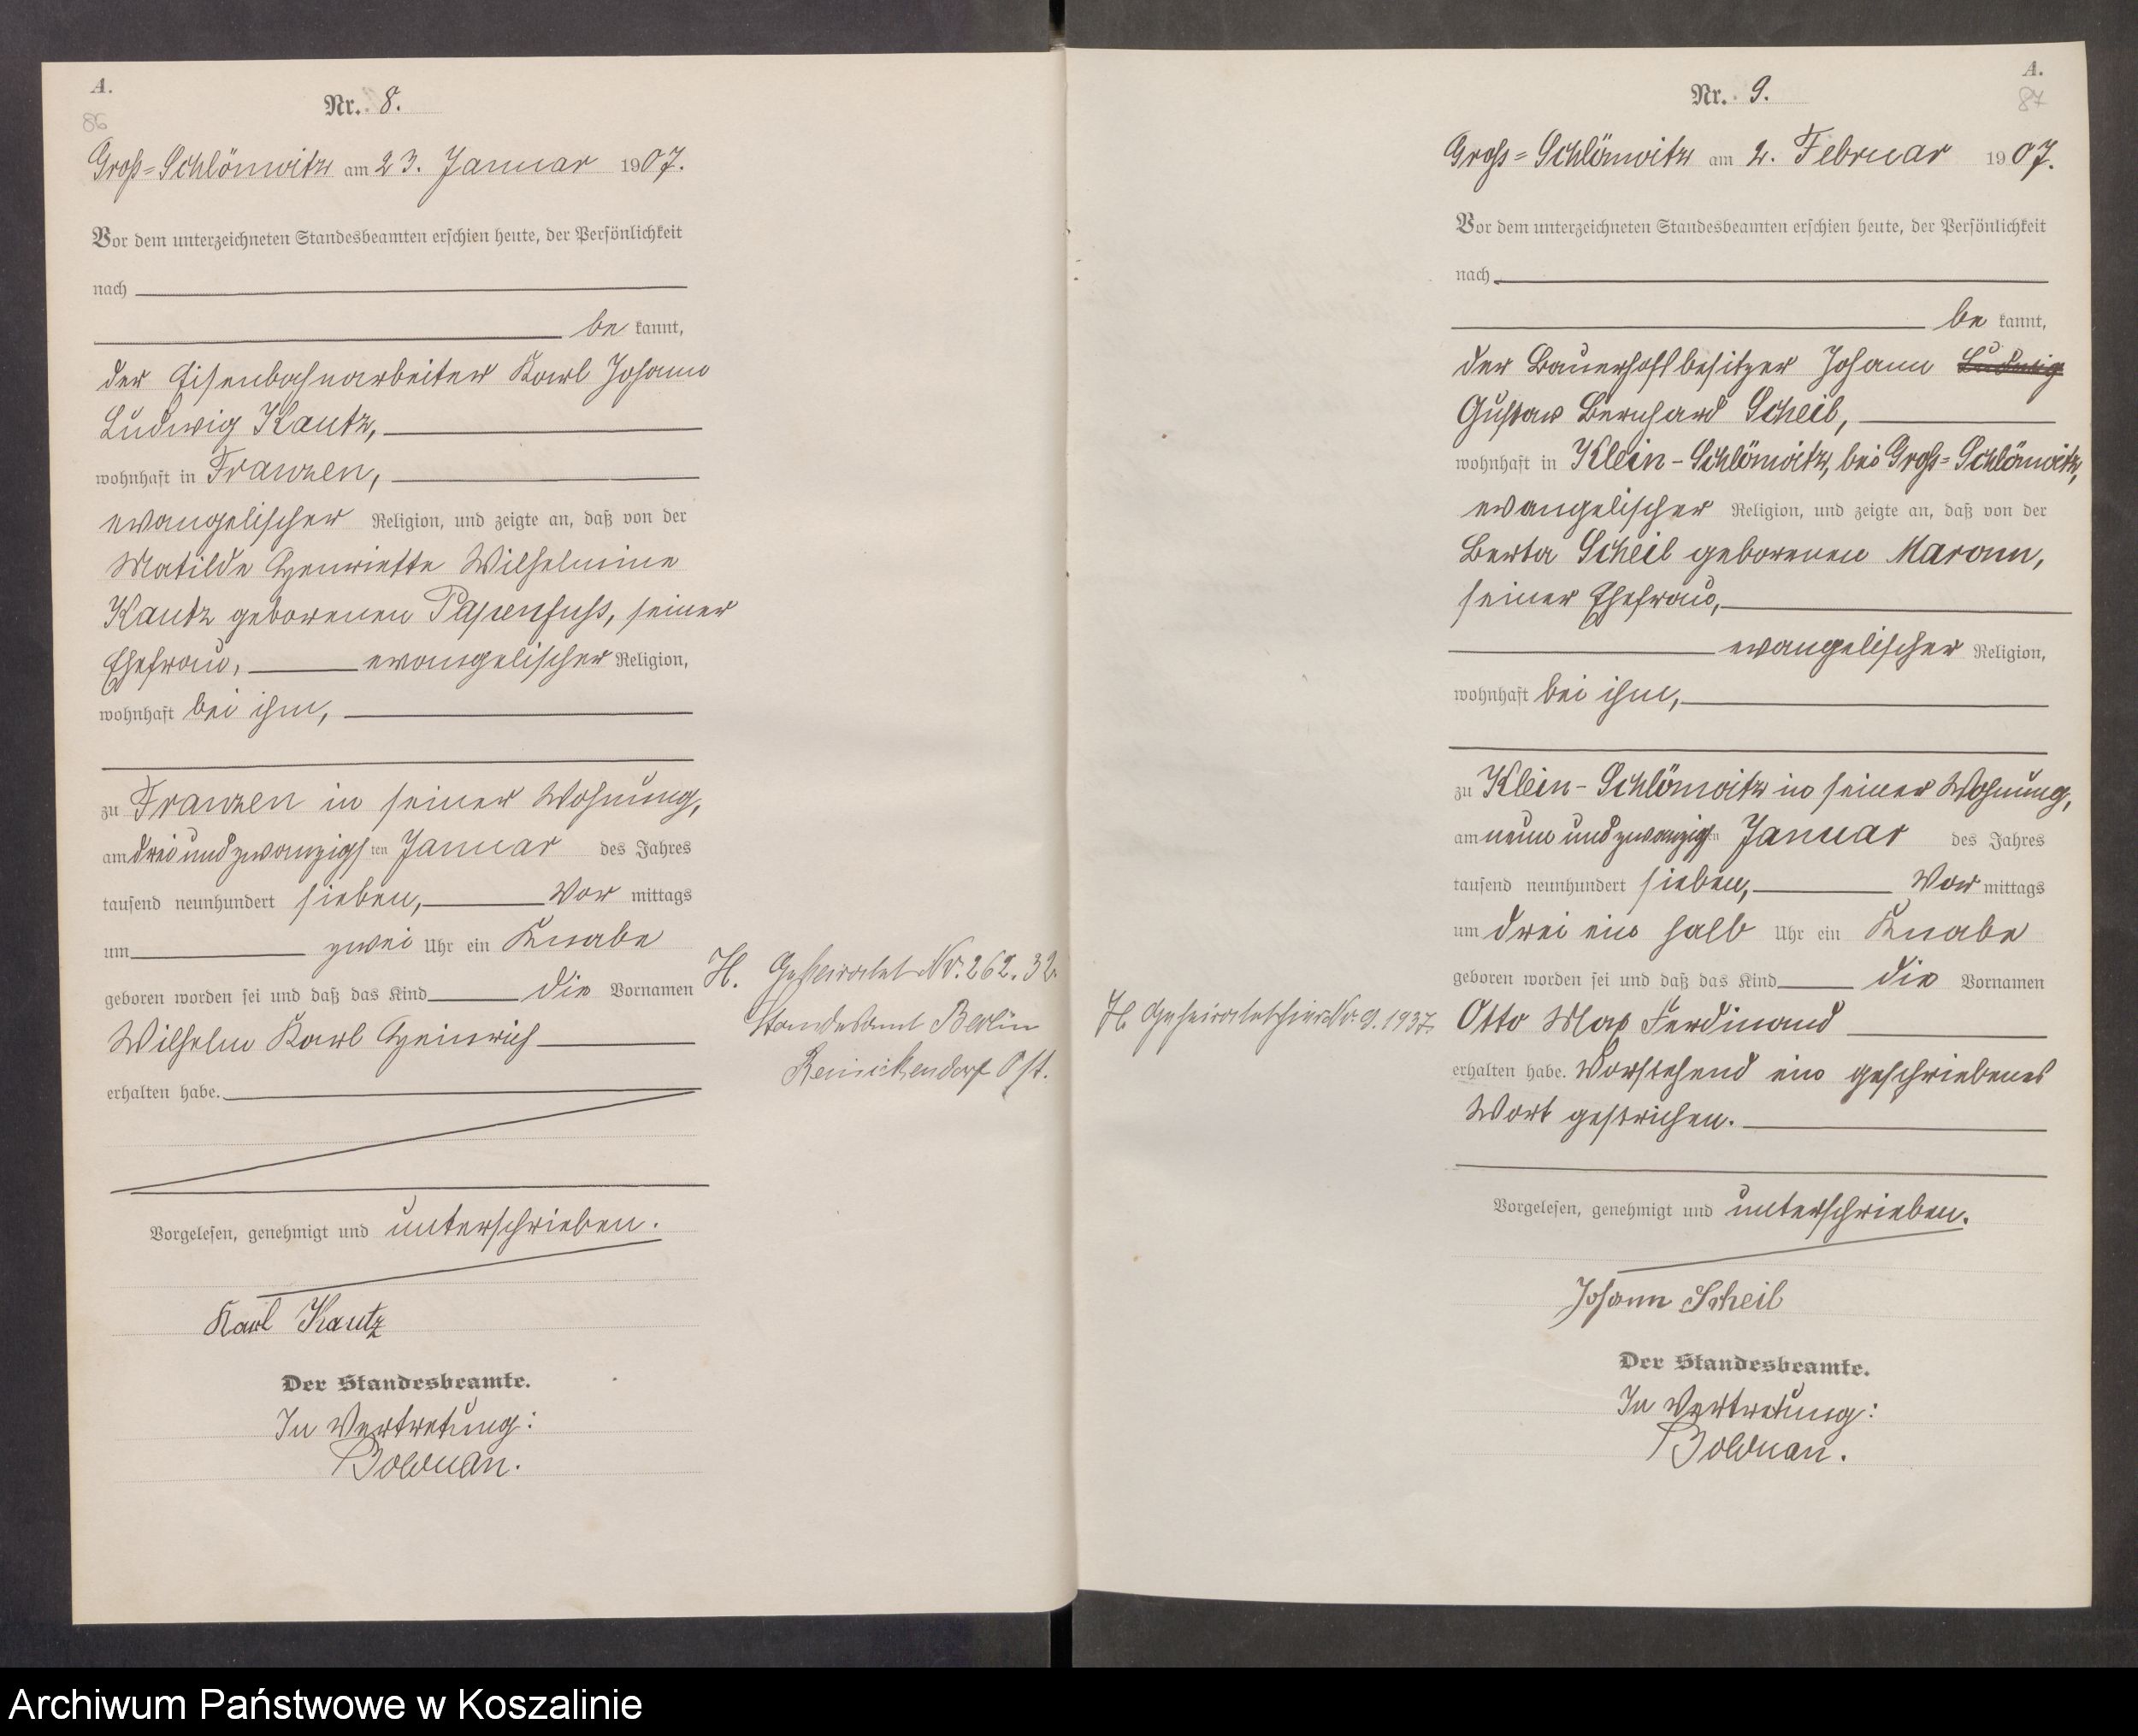 A.
86
Nr. 8.
Groß=Schlönwitz am 23. Januar 1907.
Vor dem unterzeichneten Standesbeamten erschien heute, der Persönlichkeit
nach
be kannt,
der Eisenbahnarbeiter Karl Johann
Ludwig Kautz,
wohnhaft in Franzen,
evangelischer Religion, und zeigte an, daß von der
Matilde Henriette Wilhelmine
Kautz geborenen Papenfuß, seiner
Ehefrau, evangelischer Religion,
wohnhaft bei ihm,
zu Franzen in seiner Wohnung,
am dreiundzwanzigsten Januar des Jahres
tausend neunhundert sieben, Vor mittags
um zwei Uhr ein Knabe
geboren worden sei und daß das Kind die Vornamen
Wilhelm Karl Heinrich
erhalten habe.
Vorgelesen, genehmigt und unterschrieben.
Karl Kautz
Der Standesbeamte.
In Vertretung:
Bolduan.
H. Geheiratet Nr. 262. 32.
Standesamt Berlin
Reinickendorf Ost.
A.
87
Nr. 9.
Groß=Schlönwitz am 2. Februar 1907.
Vor dem unterzeichneten Standesbeamten erschien heute, der Persönlichkeit
nach
be kannt,
der Bauerhofsbesitzer Johann Ludwig
Gustav Bernhard Scheil,
wohnhaft in Klein-Schlönwitz, bei Groß=Schlönwitz,
evangelischer Religion, und zeigte an, daß von der
Berta Scheil geborenen Maronn,
seiner Ehefrau,
evangelischer Religion,
wohnhaft bei ihm,
zu Klein-Schlönwitz in seiner Wohnung,
am neunundzwanzigsten Januar des Jahres
tausend neunhundert sieben, Vor mittags
um drei ein halb Uhr ein Knabe
geboren worden sei und daß das Kind die Vornamen
H. Geheiratet hier Nr. 9. 1937.
Otto Max Ferdinand
erhalten habe. Vorstehend ein geschriebenes
Wort gestrichen.
Vorgelesen, genehmigt und unterschrieben.
Johann Scheil
Der Standesbeamte.
In Vertretung:
Bolduan.
Archiwum Państwowe w Koszalinie